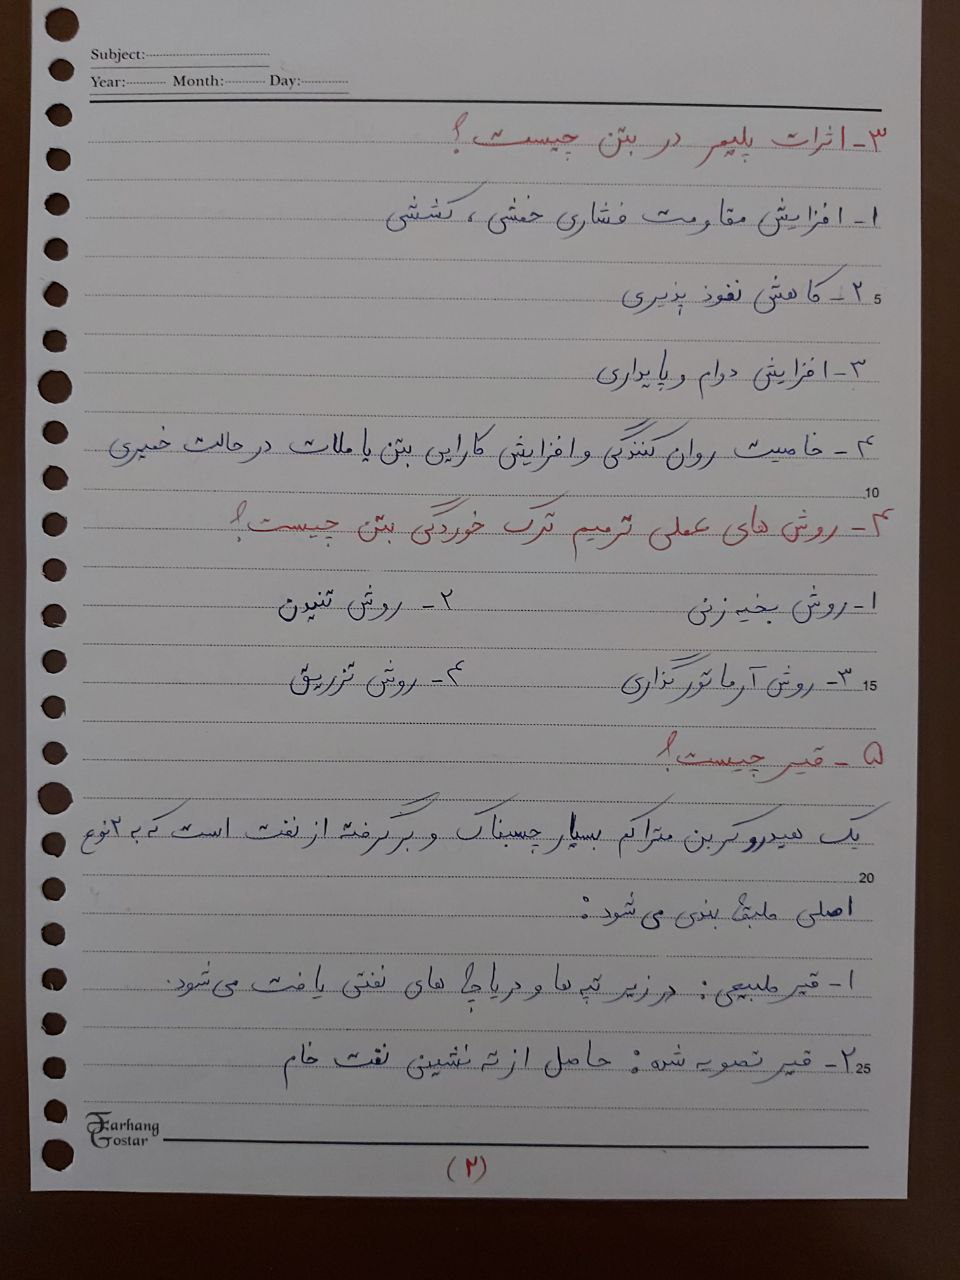 Subject:
Year: Month: Day:
۳- اثرات پلیمر در بتن چیست؟
۱- افزایش مقاومت فشاری خمشی ، کششی
۲- کاهش نفوذ پذیری
5
۳- افزایش دوام و پایداری
۴- خاصیت روان کنندگی و افزایش کارایی بتن یا ملات در حالت خمیری
10
۴- روش های عملی ترمیم ترک خوردگی بتن چیست؟
۱- روش بخیه زنی ۲- روش تنیدن
۳- روش آرماتور گذاری ۴- روش تزریق
15
۵- قیر چیست؟
یک هیدروکربن متراکم بسیار چسبناک و برگرفته از نفت است که به ۲ نوع
20
اصلی طبقه بندی می شود :
۱- قیر طبیعی : در زیر تپه ها و دریاچه های نفتی یافت می شود.
۲- قیر تصویه شده : حاصل از ته نشینی نفت خام
25
Farhang
Gostar
(۲)